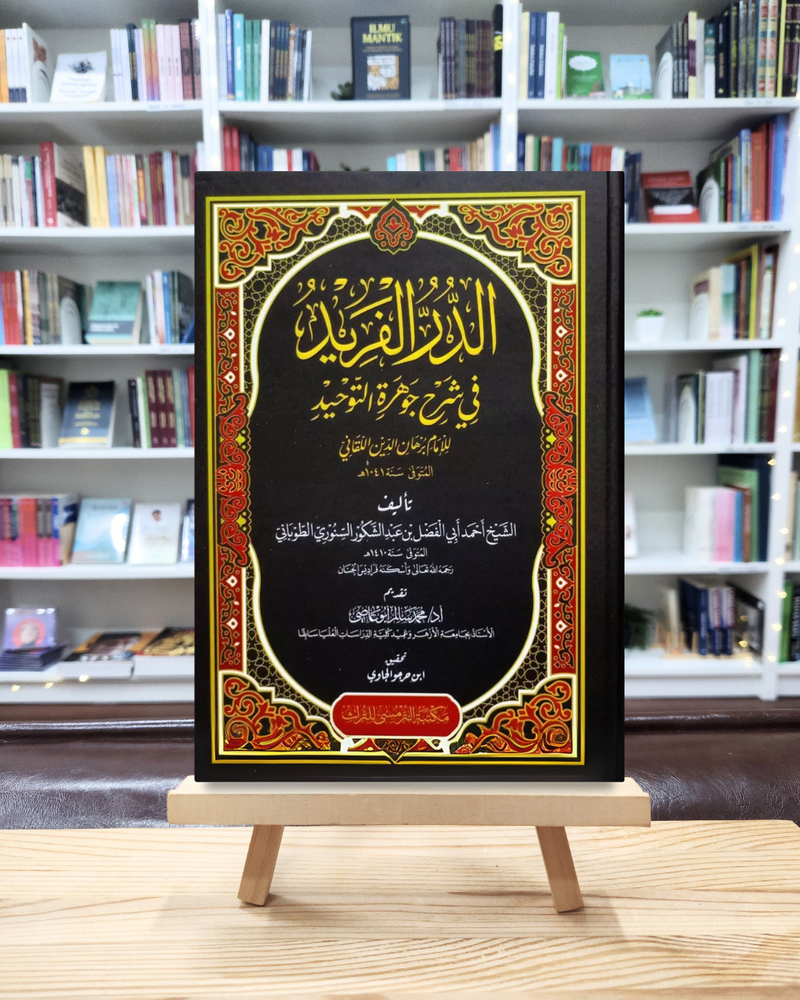 ILMU
MANTIK
الدُّرُّ الفَرِيْدُ
فِي شَرْحِ جَوْهَرَةِ التَّوْحِيْدِ
للإمام برهان الدين اللقاني
المتوفى سنة ١٠٤١هـ
تأليف
الشيخ أحمد أبي الفضل بن عبد الشكور السنوري الطوباني
المتوفى سنة ١٤١٠هـ
رحمه الله تعالى وأسكنه فراديس الجنان
تقديم
أ.د/ محمد سالم أبو عاصي
الأستاذ بجامعة الأزهر وعميد كلية الدراسات العليا سابقا
تحقيق
ابن حرجو الجاوي
مكتبة الترمسي للتراث